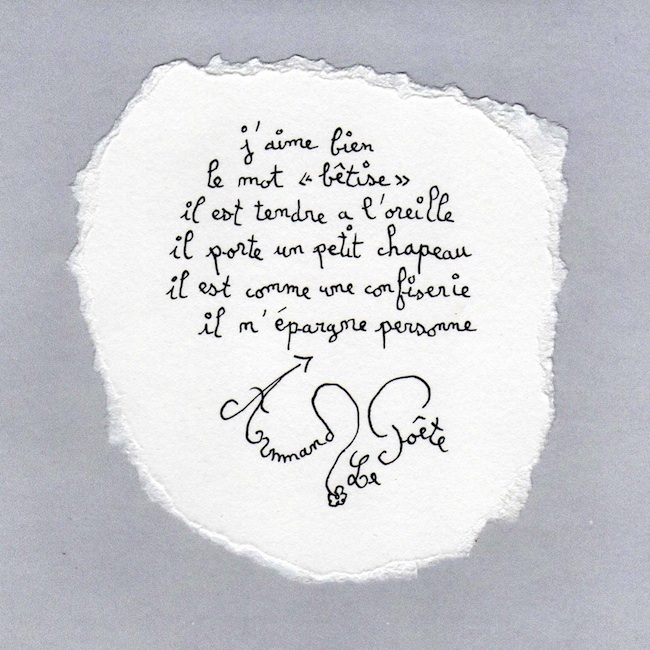 j'aime bien
le mot « bêtise »
il est tendre a l'oreille
il porte un petit chapeau
il est comme une confiserie
il n'épargne personne
Armand Le Poête